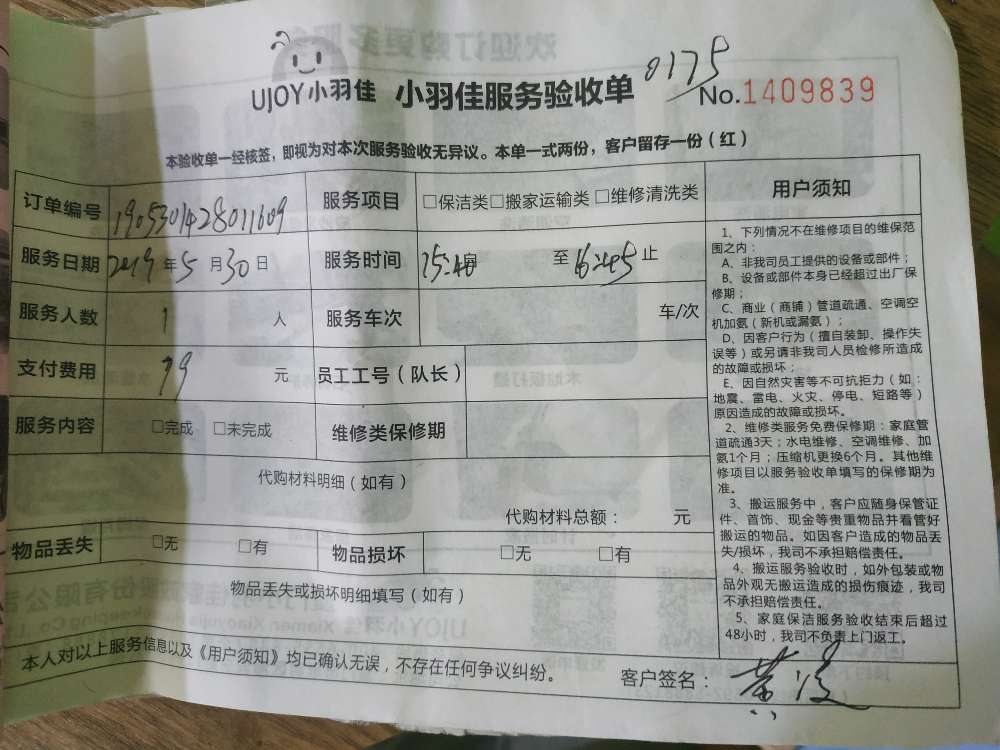 UJOY小羽佳 小羽佳服务验收单 0175
No.1409839
本验收单一经核签，即视为对本次服务验收无异议。本单一式两份，客户留存一份（红）
订单编号 1905301428011609 服务项目 □保洁类□搬家运输类 □维修清洗类
服务日期 2019年5月30日 服务时间 15:40 至16:45止
服务人数 1 人 服务车次 车/次
支付费用 79 元 员工工号（队长）
服务内容 □完成 □未完成 维修类保修期
代购材料明细（如有）
代购材料总额： 元
物品丢失 □无 □有 物品损坏 □无 □有
物品丢失或损坏明细填写（如有）
用户须知
1、下列情况不在维修项目的维保范
围之内：
A、非我司员工提供的设备或部件；
B、设备或部件本身已经超过出厂保
修期；
C、商业（商铺）管道疏通、空调空
机加氨（新机或漏氨）；
D、因客户行为（擅自装卸、操作失
误等）或另请非我司人员检修所造成
的故障或损坏；
E、因自然灾害等不可抗拒力（如：
地震、雷电、火灾、停电、短路等）
原因造成的故障或损坏。
2、维修类服务免费保修期：家庭管
道疏通3天；水电维修、空调维修、加
氨1个月；压缩机更换6个月。其他维
修项目以服务验收单填写的保修期为
准。
3、搬运服务中，客户应随身保管证
件、首饰、现金等贵重物品并看管好
搬运的物品。如因客户造成的物品丢
失/损坏，我司不承担赔偿责任。
4、搬运服务验收时，如外包装或物
品外观无搬运造成的损伤痕迹，我司
不承担赔偿责任。
5、家庭保洁服务验收结束后超过
48小时，我司不负责上门返工。
本人对以上服务信息以及《用户须知》均已确认无误，不存在任何争议纠纷。
客户签名：黄